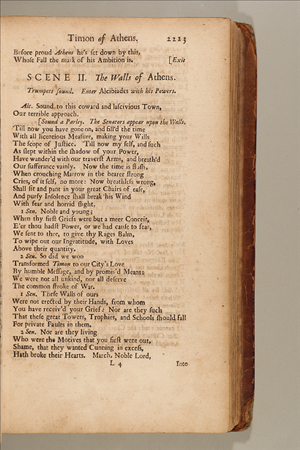 Timon of Athens. 2223
Before proud Athens he's set down by this,
Whose Fall the mark of his Ambition is. [Exit
SCENE II. The Walls of Athens.
Trumpets sound. Enter Alcibiades with his Powers.
Alc. Sound to this coward and lascivious Town,
Our terrible approach.
[Sound a Parley. The Senators appear upon the Walls.
Till now you have gone on, and fill'd the time
With all licentious Measure, making your Wills
The scope of Justice. Till now my self, and such
As slept within the shadow of your Power,
Have wander'd with our traverst Arms, and breath'd
Our sufferance vainly. Now the time is flush,
When crouching Marrow in the bearer strong
Cries, of it self, no more: Now breathless wrong,
Shall sit and pant in your great Chairs of ease,
And pursy Insolence shall break his Wind
With fear and horrid flight.
1 Sen. Noble and young;
When thy first Griefs were but a meer Conceit,
E'er thou hadst Power, or we had cause to fear,
We sent to thee, to give thy Rages Balm,
To wipe out our Ingratitude, with Loves
Above their quantity.
2 Sen. So did we woo
Transformed Timon to our City's Love
By humble Message, and by promis'd Means:
We were not all unkind, nor all deserve
The common stroke of War.
1 Sen. These Walls of ours
Were not erected by their Hands, from whom
You have receiv'd your Grief: Nor are they such
That these great Towers, Trophies, and Schools should fall
For private Faults in them.
2 Sen. Nor are they living
Who were the Motives that you first went out,
Shame, that they wanted Cunning in excess,
Hath broke their Hearts. March, Noble Lord,
L 4 Into